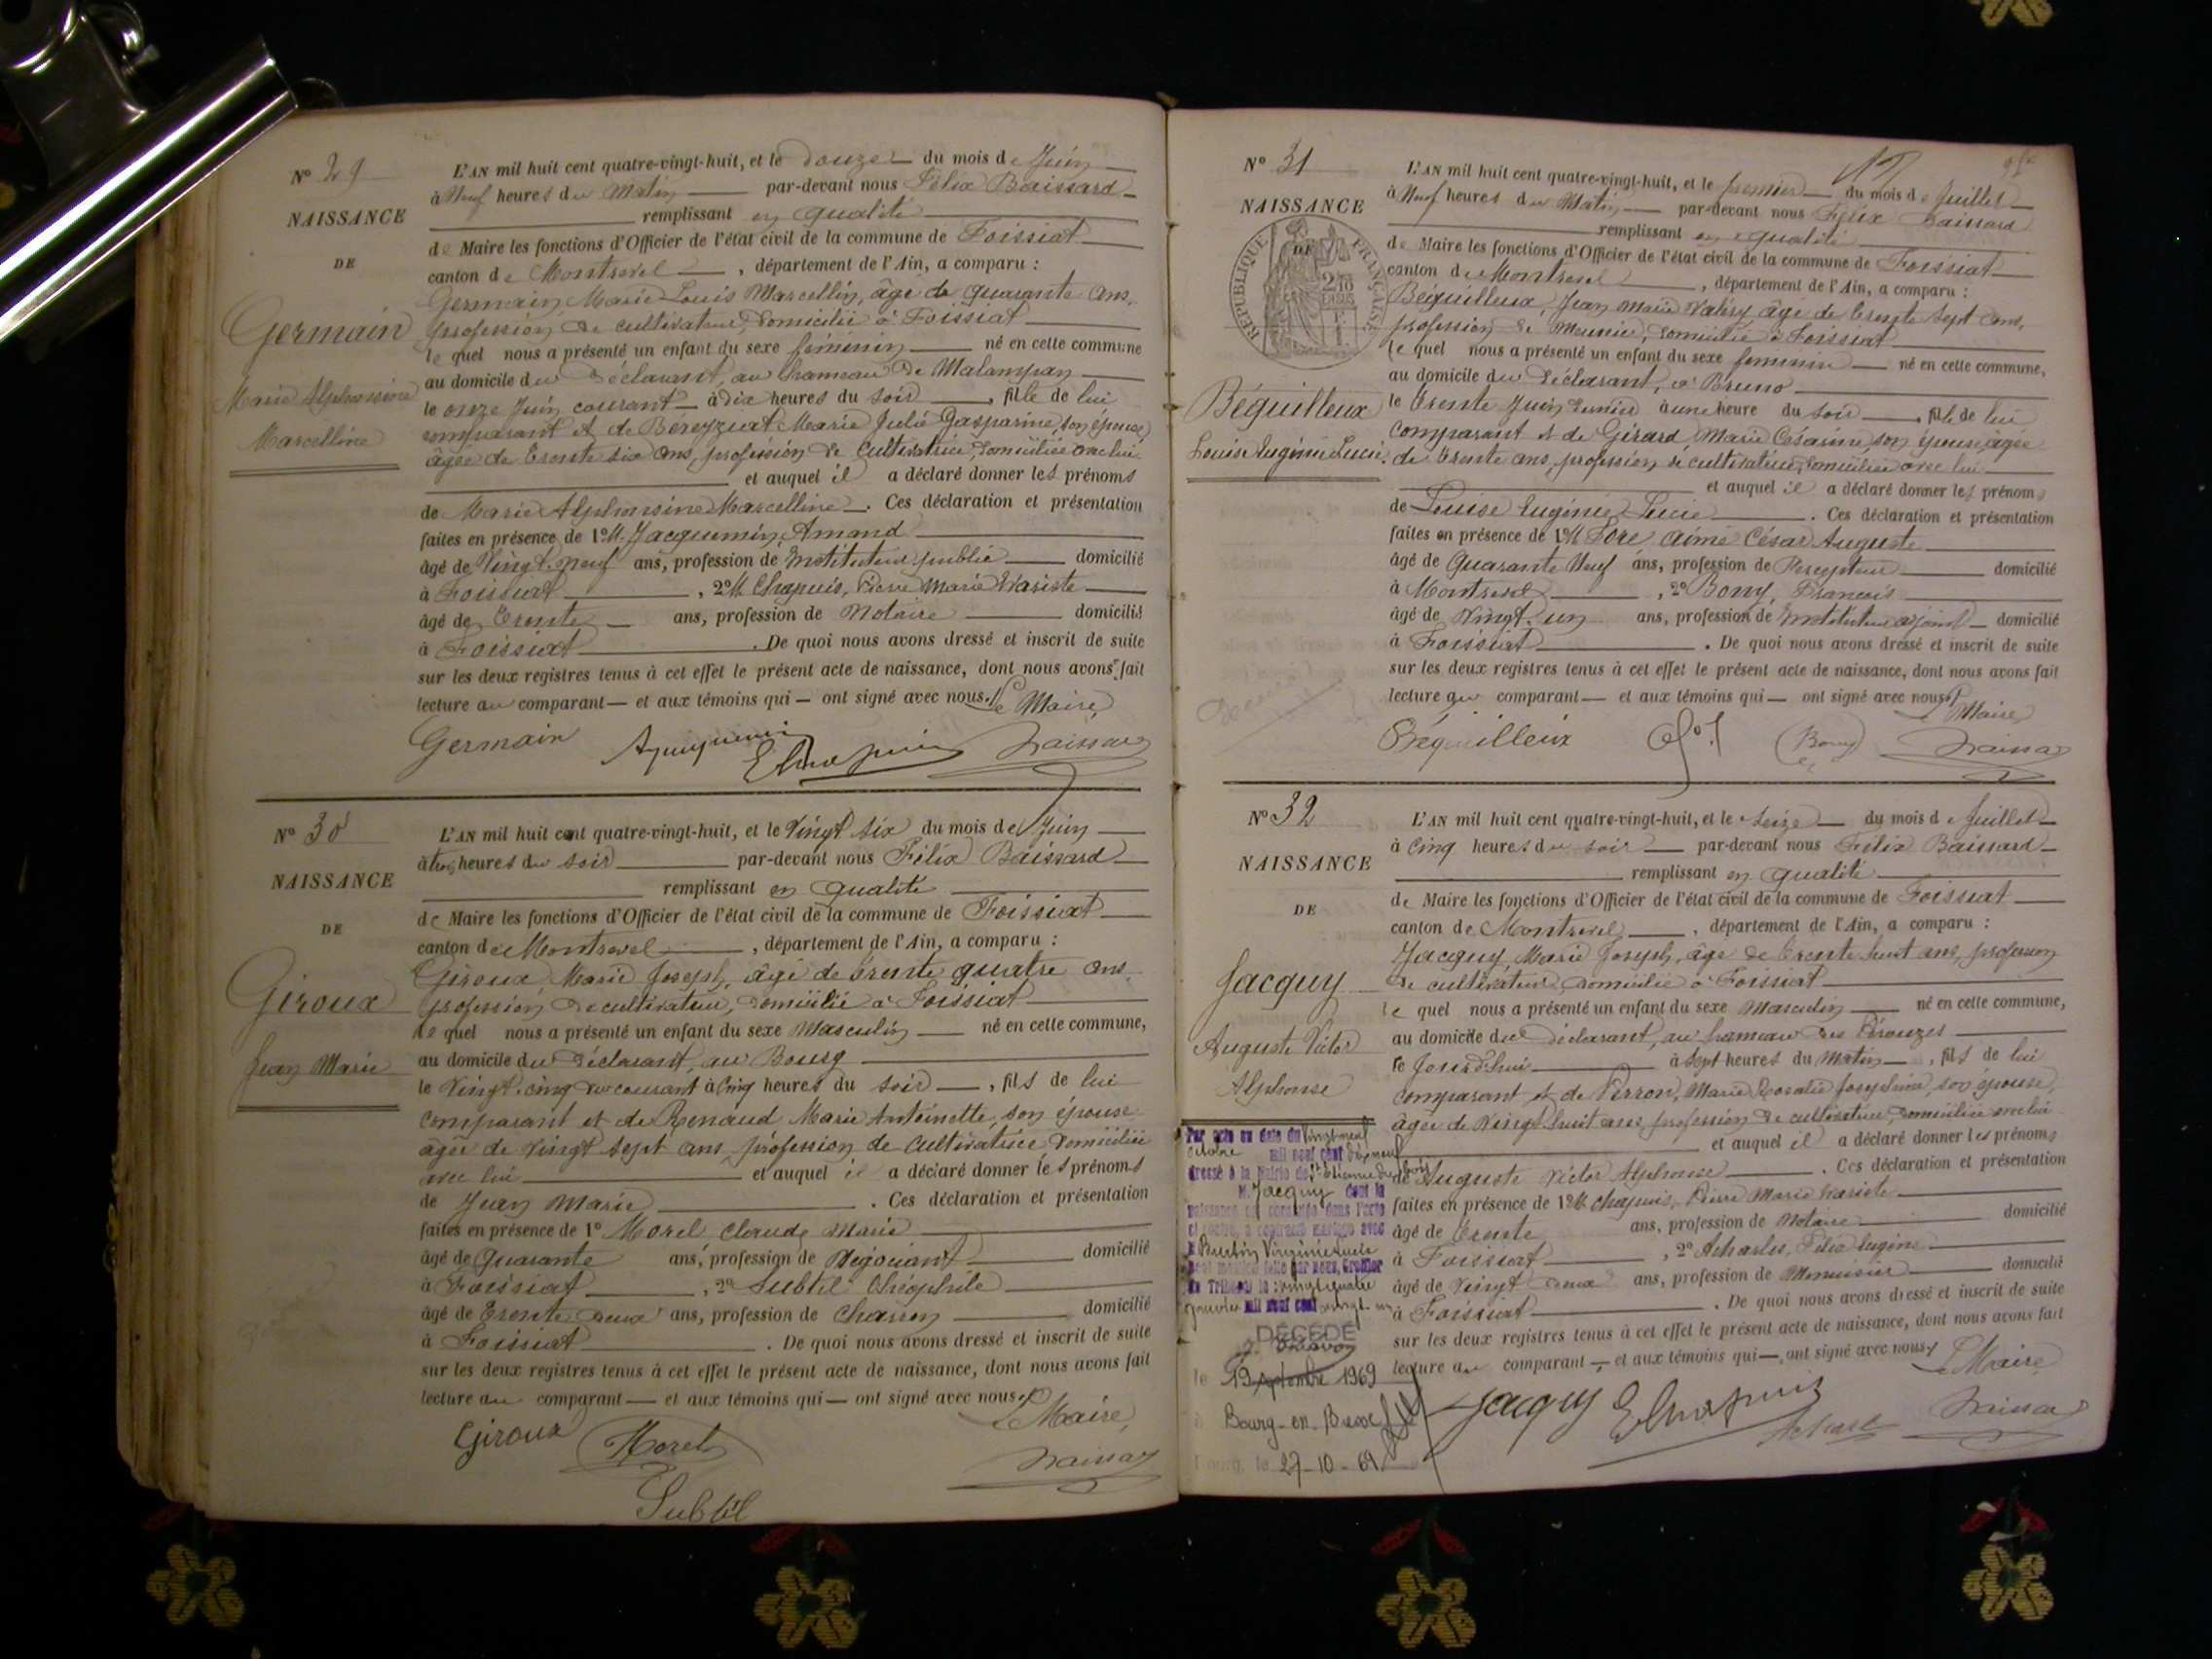 N° 29
NAISSANCE
DE
Germain
Marie Alphonsine
Marcelline
L'AN mil huit cent quatre-vingt-huit, et le douze du mois de Juin
à Neuf heures du Matin par-devant nous Félix Baissard
remplissant en qualité
de Maire les fonctions d'Officier de l'état civil de la commune de Foissiat
canton de Montrevel, département de l'Ain, a comparu :
Germain Marie Louis Marcellin, âgé de quarante ans,
profession de cultivateur, domicilié à Foissiat
le quel nous a présenté un enfant du sexe féminin né en cette commune
au domicile du déclarant, au hameau de Malampan
le onze Juin courant à dix heures du soir, fille de lui
comparant et de Bereyziat Marie Julie Gasparine, son épouse
âgée de trente six ans, profession de cultivatrice, domiciliée avec lui
et auquel il a déclaré donner les prénoms
de Marie Alphonsine Marcelline. Ces déclaration et présentation
faites en présence de 1° M. Jacquemin, Amand
âgé de Vingt-neuf ans, profession de Instituteur public domicilié
à Foissiat, 2° M. Chapuis, Pierre Marie Evariste
âgé de trente ans, profession de Notaire domicilié
à Foissiat. De quoi nous avons dressé et inscrit de suite
sur les deux registres tenus à cet effet le présent acte de naissance, dont nous avons fait
lecture au comparant — et aux témoins qui — ont signé avec nous. Le Maire,
Germain AJacquemin EChapuis Baissard
N° 30
NAISSANCE
DE
Giroux
Jean Marie
L'AN mil huit cent quatre-vingt-huit, et le Vingt six du mois de Juin
à trois heures du soir par-devant nous Félix Baissard
remplissant en qualité
de Maire les fonctions d'Officier de l'état civil de la commune de Foissiat
canton de Montrevel, département de l'Ain, a comparu :
Giroux Marie Joseph, âgé de trente quatre ans
profession de cultivateur, domicilié à Foissiat
le quel nous a présenté un enfant du sexe Masculin né en cette commune,
au domicile du déclarant, au Bourg
le Vingt-cinq du courant à Cinq heures du soir, fils de lui
comparant et de Renaud Marie Antoinette, son épouse
âgée de vingt sept ans, profession de Cultivatrice domiciliée
avec lui et auquel il a déclaré donner les prénoms
de Jean Marie. Ces déclaration et présentation
faites en présence de 1° Morel Claude Marie
âgé de Quarante ans, profession de Négociant domicilié
à Foissiat, 2° Subtil Théophile
âgé de trente deux ans, profession de Charron domicilié
à Foissiat. De quoi nous avons dressé et inscrit de suite
sur les deux registres tenus à cet effet le présent acte de naissance, dont nous avons fait
lecture au comparant — et aux témoins qui — ont signé avec nous.
Le Maire,
Giroux Morel Baissard
Subtil
N° 31
NAISSANCE
DE
RÉPUBLIQUE FRANÇAISE
Béguilleux
Louise Eugénie Lucie
L'AN mil huit cent quatre-vingt-huit, et le premier du mois de Juillet
à Neuf heures du Matin par-devant nous Félix Baissard
remplissant en qualité
de Maire les fonctions d'Officier de l'état civil de la commune de Foissiat
canton de Montrevel, département de l'Ain, a comparu :
Béguilleux, Jean Marie Valéry âgé de trente sept ans,
profession de Meunier, domicilié à Foissiat
le quel nous a présenté un enfant du sexe féminin né en cette commune,
au domicile du déclarant, à Bruno
le trente Juin dernier à une heure du soir, fille de lui
comparant et de Girard Marie Césarine, son épouse, âgée
de trente ans, profession de cultivatrice, domiciliée avec lui
et auquel il a déclaré donner les prénoms
de Louise Eugénie Lucie. Ces déclaration et présentation
faites en présence de 1° M. aimé César Auguste
âgé de Quarante Neuf ans, profession de Percepteur domicilié
à Montrevel, 2° Bony, François
âgé de Vingt-un ans, profession de Instituteur adjoint domicilié
à Foissiat. De quoi nous avons dressé et inscrit de suite
sur les deux registres tenus à cet effet le présent acte de naissance, dont nous avons fait
lecture au comparant — et aux témoins qui — ont signé avec nous.
Le Maire
Béguilleux Bony Baissard
N° 32
NAISSANCE
DE
Jacquy
Auguste Victor
Alphonse
L'AN mil huit cent quatre-vingt-huit, et le seize du mois de Juillet
à Cinq heures du soir par-devant nous Félix Baissard
remplissant en qualité
de Maire les fonctions d'Officier de l'état civil de la commune de Foissiat
canton de Montrevel, département de l'Ain, a comparu :
Jacquy, Marie Joseph, âgé de trente huit ans, profession
de cultivateur domicilié à Foissiat
le quel nous a présenté un enfant du sexe Masculin né en cette commune,
au domicile du déclarant, au hameau des Pérouzes
le Jourd'hui à sept heures du Matin, fils de lui
comparant et de Perron, Marie Rosalie Joséphine, son épouse,
âgée de Vingt huit ans, profession de cultivatrice, domiciliée avec lui
et auquel il a déclaré donner les prénoms
de Auguste Victor Alphonse. Ces déclaration et présentation
faites en présence de 1° M. Chapuis, Pierre Marie Evariste
âgé de trente ans, profession de Notaire domicilié
à Foissiat, 2° Acharles, Félix Eugène
âgé de Vingt deux ans, profession de Menuisier domicilié
à Foissiat. De quoi nous avons dressé et inscrit de suite
sur les deux registres tenus à cet effet le présent acte de naissance, dont nous avons fait
lecture au comparant — et aux témoins qui — ont signé avec nous.
Le Maire,
Jacquy EChapuis Baissard
Par acte en date du vingt neuf
octobre mil neuf cent dix neuf
dressé à la Mairie de St Etienne du bois
M. Jacquy dont la
naissance est constatée dans l'acte
ci contre, a contracté mariage avec
Virginie
mention faite par nous, Greffier
du Tribunal le vingt quatre
Janvier mil neuf cent vingt un
DÉCÉDÉ
le 19 septembre 1969
à Bourg-en-Bresse
Bourg, le 27-10-69